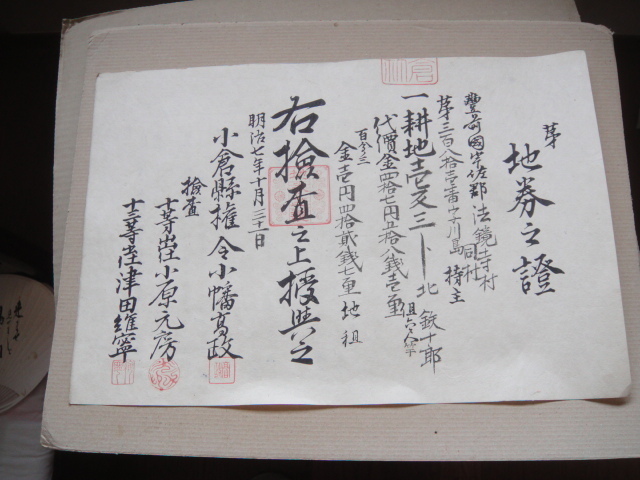 地券之證
豊前國宇佐郡法鏡寺村
第三百八拾三番字川島 同村 持主
一耕地壱反三 北鉄十郎
代價金四拾七円五拾八銭壱厘
百分ノ三
金壱円四拾貳銭七厘 地租
右檢査之上授與之
明治七年十月三十一日
小倉縣權令小幡高政
檢査
十等出仕小原元房
十三等出仕津田維寧